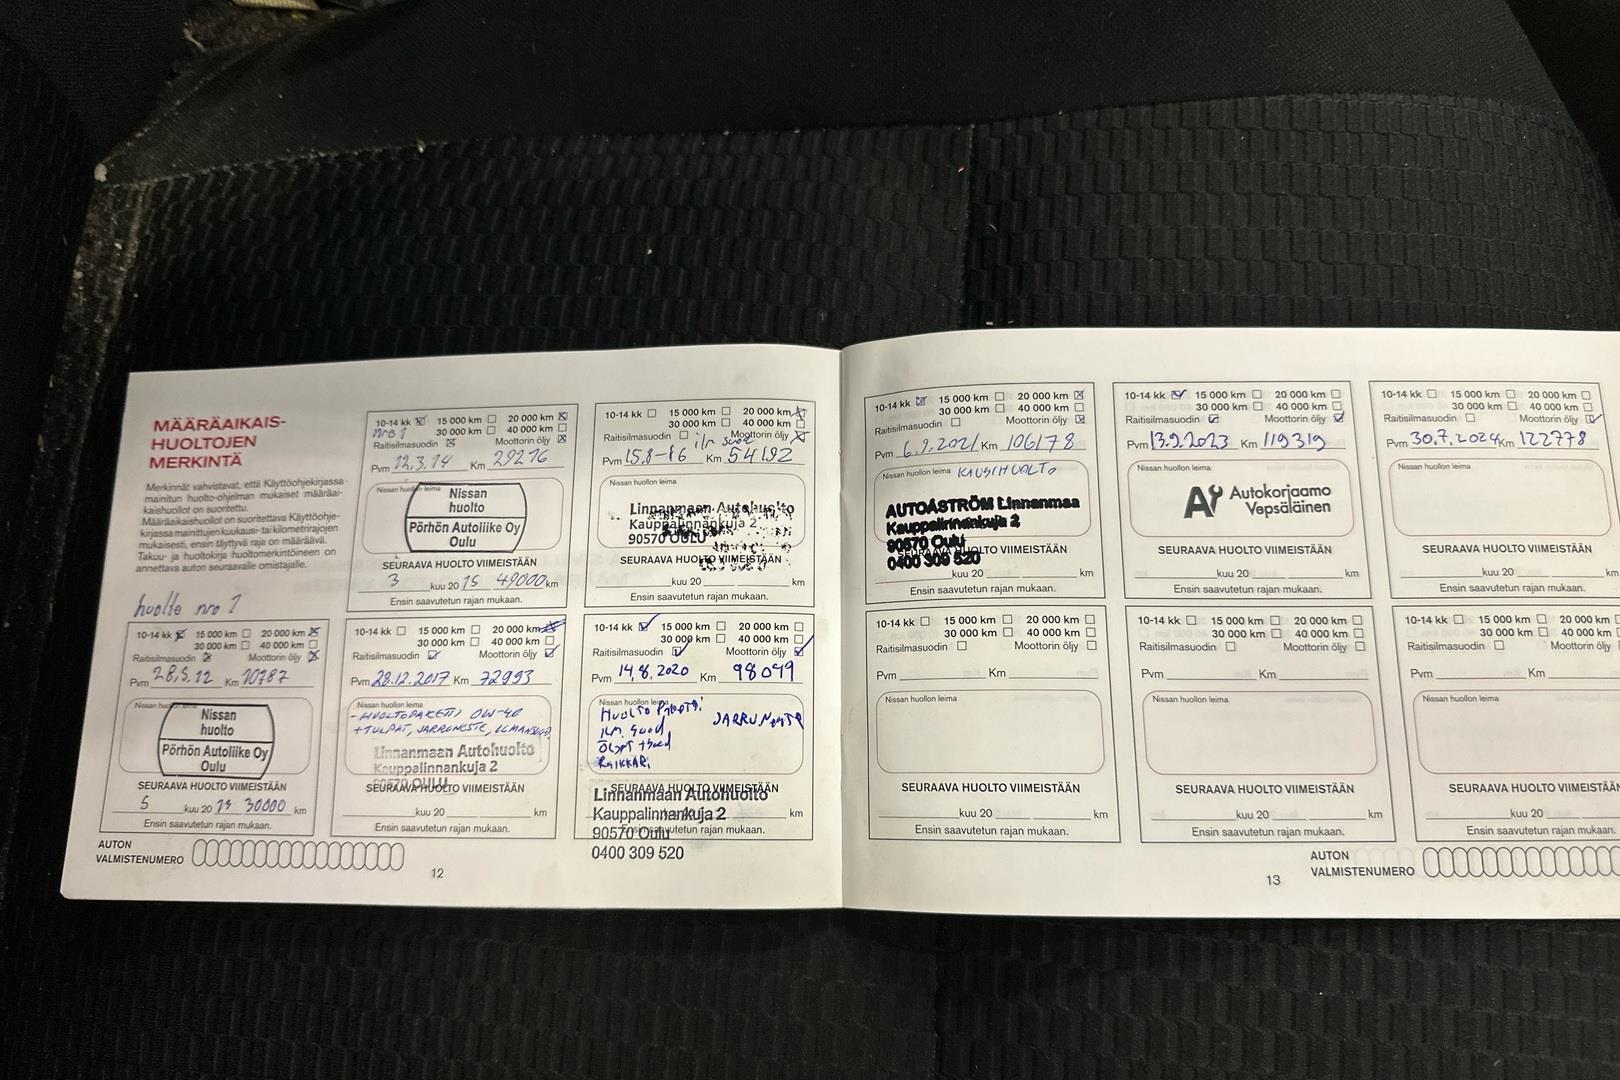 MÄÄRÄAIKAIS-
HUOLTOJEN
MERKINTÄ
Merkinnät vahvistavat, että Käyttöohjekirjassa
mainitun huolto-ohjelman mukaiset määräai-
kaishuollot on suoritettu.
Määräaikaishuollot on suoritettava Käyttöohje-
kirjassa mainittujen kuukausi- tai kilometrirajojen
mukaisesti, ensin täyttyvä raja on määräävä.
Takuu- ja huoltokirja huoltomerkintöineen on
annettava auton seuraavalle omistajalle.
huolto nro 1
10-14 kk 15 000 km 20 000 km
30 000 km 40 000 km
Raitisilmasuodin Moottorin öljy
Pvm 28.5.12 Km 10787
Nissan huollon leima
Nissan
huolto
Pörhön Autoliike Oy
Oulu
SEURAAVA HUOLTO VIIMEISTÄÄN
5 kuu 20 13 30000 km
Ensin saavutetun rajan mukaan.
10-14 kk 15 000 km 20 000 km
30 000 km 40 000 km
Raitisilmasuodin Moottorin öljy
Pvm 12.3.14 Km 29216
Nissan huollon leima
Nissan
huolto
Pörhön Autoliike Oy
Oulu
SEURAAVA HUOLTO VIIMEISTÄÄN
3 kuu 20 15 49000 km
Ensin saavutetun rajan mukaan.
10-14 kk 15 000 km 20 000 km
30 000 km 40 000 km
Raitisilmasuodin Moottorin öljy
Pvm 15.8-16 Km 54192
Nissan huollon leima
Linnanmaan Autohuolto
Kauppalinnankuja 2
90570 OULU
SEURAAVA HUOLTO VIIMEISTÄÄN
kuu 20 km
Ensin saavutetun rajan mukaan.
10-14 kk 15 000 km 20 000 km
40 000 km
Raitisilmasuodin Moottorin öljy
Pvm 28.12.2017 Km 72993
Nissan huollon leima
-HUOLTOPAKETTI 0W-40
+TULPAT, JARRUNESTE,
Linnanmaan Autohuolto
Kauppalinnankuja 2
90570 OULU
SEURAAVA HUOLTO VIIMEISTÄÄN
kuu 20 km
Ensin saavutetun rajan mukaan.
10-14 kk 15 000 km 20 000 km
30 000 km 40 000 km
Raitisilmasuodin Moottorin öljy
Pvm 14,8.2020 Km 98099
Nissan huollon leima
JARRUNESTE
SEURAAVA HUOLTO VIIMEISTÄÄN
Linnanmaan Autohuolto
Kauppalinnankuja 2
km
90570 Oulu
0400 309 520
Ensin saavutetun rajan mukaan.
AUTON
VALMISTENUMERO
12
10-14 kk 15 000 km 20 000 km
30 000 km 40 000 km
Raitisilmasuodin Moottorin öljy
Pvm 6.9.2021 Km 106178
Nissan huollon leima KAUSIHUOLTO
AUTOÅSTRÖM Linnanmaa
Kauppalinnankuja 2
90570 Oulu
0400 309 520
SEURAAVA HUOLTO VIIMEISTÄÄN
kuu 20 km
Ensin saavutetun rajan mukaan.
10-14 kk 15 000 km 20 000 km
30 000 km 40 000 km
Raitisilmasuodin Moottorin öljy
Pvm 13.9.2023 Km 119319
Nissan huollon leima
Autokorjaamo
Vepsäläinen
SEURAAVA HUOLTO VIIMEISTÄÄN
kuu 20 km
Ensin saavutetun rajan mukaan.
10-14 kk 15 000 km 20 000 km
30 000 km 40 000 km
Raitisilmasuodin Moottorin öljy
Pvm 30.7.2024 Km 122778
Nissan huollon leima
SEURAAVA HUOLTO VIIMEISTÄÄN
kuu 20
Ensin saavutetun rajan mukaan.
10-14 kk 15 000 km 20 000 km
30 000 km 40 000 km
Raitisilmasuodin Moottorin öljy
Pvm Km
Nissan huollon leima
SEURAAVA HUOLTO VIIMEISTÄÄN
kuu 20 km
Ensin saavutetun rajan mukaan.
10-14 kk 15 000 km 20 000 km
30 000 km 40 000 km
Raitisilmasuodin Moottorin öljy
Pvm Km
Nissan huollon leima
SEURAAVA HUOLTO VIIMEISTÄÄN
kuu 20 km
Ensin saavutetun rajan mukaan.
10-14 kk 15 000 km 20 000 km
30 000 km 40 000 km
Raitisilmasuodin Moottorin öljy
Pvm Km
Nissan huollon leima
SEURAAVA HUOLTO VIIMEISTÄÄN
kuu 20
Ensin saavutetun rajan mukaan.
AUTON
VALMISTENUMERO
13